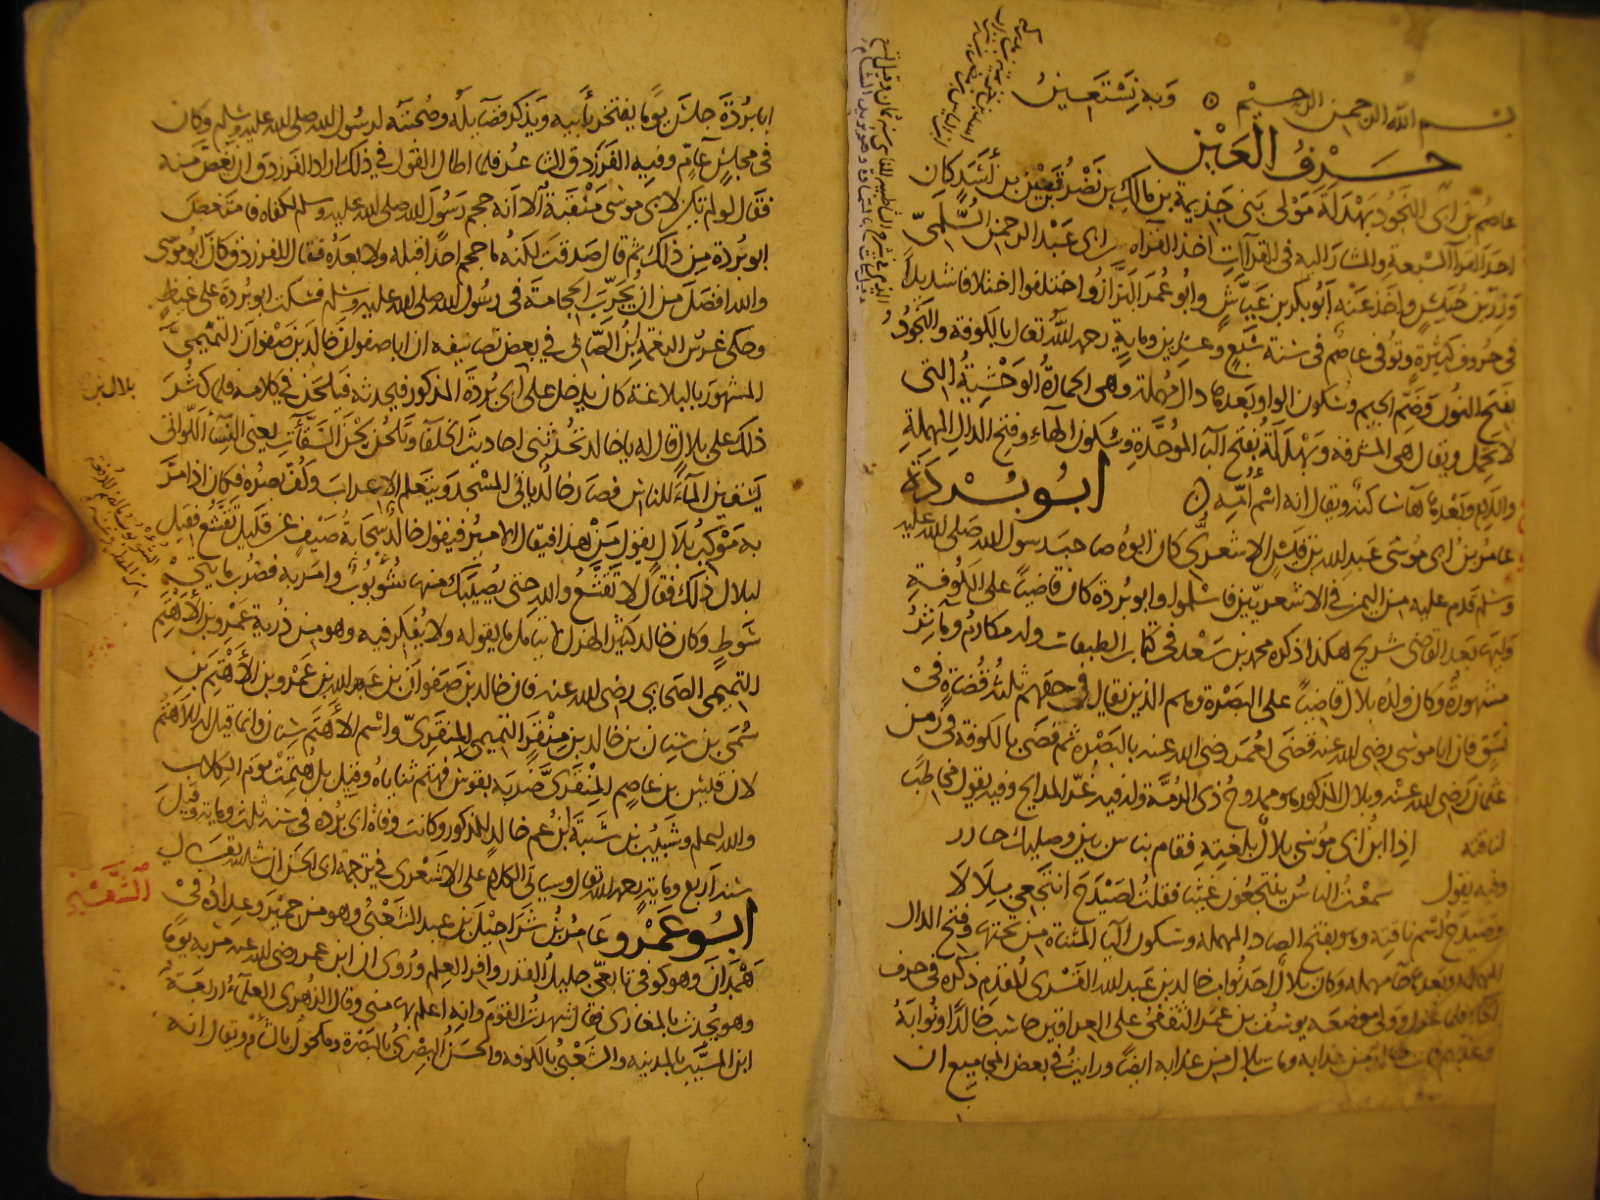 بسم الله الرحمن الرحيم وبه نستعين
حرف العين
عاصم بن ابي النجود بهدلة مولى بني جذيمة بن مالك بن نصر بن قعين بن أسد كان
احد القراء السبعة والمشار اليه في القراآت اخذ القراة ابي عبد الرحمن السلمي
وزر بن حبيش واخذ عنه أبو بكر بن عياش وابو عمر البزاز واختلفوا اختلافا شديدا
في حروف كثيرة وتوفي عاصم في سنة سبع وعشرين وماية رحمه الله تعالى بالكوفة والنجود
بفتح النون وضم الجيم وسكون الواو وبعدها دال مهملة وهي الحمارة الوحشية التي
لا تحمل ويقال هي المشرفة وبهدلة بفتح الباء الموحدة وسكون الهاء وفتح الدال المهملة
واللام وبعدها هاء ساكنة ويقال انه اسم أمه
ابو بردة
عامر بن ابي موسى عبد الله بن قيس الاشعري كان ابوه صاحب رسول الله صلى الله عليه
وسلم قدم عليه من اليمن في الاشعريين فاسلموا وابو بردة كان قاضيا على الكوفة
وليها بعد القاضي شريح هكذا ذكره محمد بن سعد في كتاب الطبقات وله مكارم ومآثر
مشهورة وكان ولده بلال قاضيا على البصرة وهم الذين يقال في حقهم ثلثة قضاة في
نسق فان ابا موسى رضي الله عنه قضى لعمر رضي الله عنه بالبصرة ثم قضى بالكوفة في زمن
عثمان رضي الله عنه وبلال المذكور هو ممدوح ذي الرمة وله فيه غر المدايح وفيه يقول مخاطبا
لناقته اذا ابن ابي موسى بلال بلغته فقام بفاس بين وصليك جازر
وفيه يقول سمعت الناس ينتجعون غيثا فقلت لصيدح انتجعي بلالا
وصيدح اسم ناقته وهو بفتح الصاد المهملة وسكون الياء المثناة من تحتها وفتح الدال
المهملة وبعدها حاء مهملة وكان بلال احد نواب خالد بن عبد الله القسري المقدم ذكره في حرف
الخاء فلما عزل وولي موضعه يوسف بن عمر الثقفي على العراقين حاسب خالدا ونوابه
وعذبهم فمات خالد من عذابه ومات بلال من عذابه ايضا ورايت في بعض المجاميع ان
ابا بردة جلس يوما يفتخر بأبيه ويذكر فضايله وصحبته لرسول الله صلى الله عليه وسلم وكان
في مجلس عام وفيه الفرزدق الشاعر فلما اطال القول في ذلك اراد الفرزدق ان يغض منه
فقال لو لم يكن لابي موسى منقبة ألا انه حجم رسول الله صلى الله عليه وسلم لكفاه فامتعض
ابو بردة من ذلك ثم قال صدقت لكنه ما حجم احدا قبله ولا بعده فقال الفرزدق كان ابو موسى
والله افضل من ان يجرب الحجامة في رسول الله صلى الله عليه وسلم فسكت ابو بردة على غيظ
وحكى غرس النعمة بن الصابي في بعض تصانيفه ان ابا صفوان خالد بن صفوان التميمي
المشهور بالبلاغة كان يدخل على أبي بردة المذكور فيحدثه فيلحن في كلامه فلما كثر
بلال بن
ذلك على بلال قال له يا خالد تحدثني احاديث الخلفا وتلحن لحن السقآآت يعني النسآ اللواتي
يسقين المآء للناس فصار خالد ياتي المسجد ويتعلم الاعراب وكف بصره فكان اذا مر
به موكب بلال يقول من هذا فيقال الامير فيقول خالد سحابة صيف عن قليل تقشع فقيل
لبلال ذلك فقال لا تقشع والله حتى يصيبك منها شؤبوب وامر به فضرب مايتي
سوط وكان خالد كثير الهزل لا يتامل ما يقوله ولا يفكر فيه وهو من ذرية عمرو بن الأهتم
التميمي الصحابي رضي الله عنه فان خالد بن صفوان بن عبد الله بن عمرو بن الأهتم بن
سمي بن سنان بن خالد بن منقر التميمي المنقري واسم الأهتم سنان وانما قيل له الاهتم
لان قيس بن عاصم المنقري ضربه بقوس فهتم ثناياه وقيل بل هتمت يوم الكلاب
والله اعلم وشبيب بن شيبة ابن عم خالد المذكور وكانت وفاة ابي بردة في سنة ثلث وماية وقيل
سنة اربع وماية رحمه الله تعالى وسياتي الكلام على الاشعري في ترجمة ابي الحسن ان شا الله تعالى
الشعبي
ابو عمرو عامر بن شراحيل بن عبد الشعبي وهو من حمير وعداده في
همدان وهو كوفي تابعي جليل القدر وافر العلم وروي ان ابن عمر رضي الله عنه مر به يوما
وهو يحدث بالمغازي فقال شهدت القوم وانه اعلم بها مني وقال الزهري العلمآء اربعة
ابن المسيب بالمدينة والشعبي بالكوفة والحسن البصري بالبصرة ومكحول بالشام ويقال انه